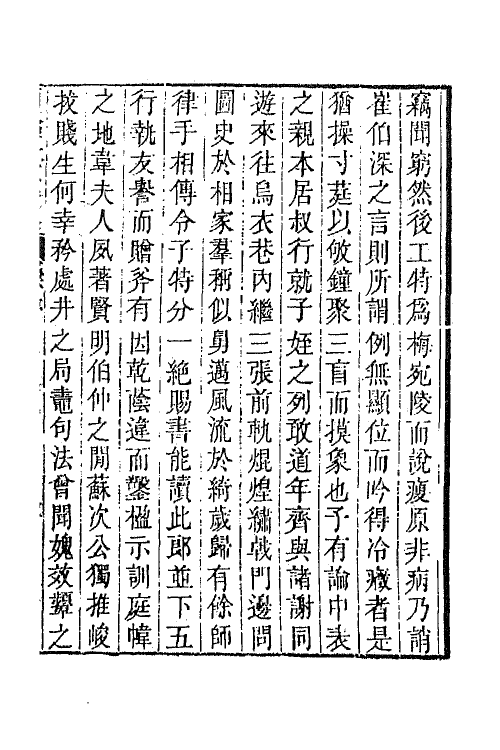 竊聞窮然後工特爲梅宛陵而說瘦原非病乃誚
崔伯深之言則所謂例無顯位而吟得冷癡者是
猶操寸莛以敂鐘聚三盲而摸象也予有論中表
之親本居叔行就子姪之列敢道年齊與諸謝同
遊來往烏衣巷內繼三張前軌焜煌繡戟門邊問
圖史於相家羣稱似舅邁風流於綺歲歸有餘師
律手相傳令子特分一絶賜書能讀此郎並下五
行執友譽而贈斧有因乾蔭違而鑿楹示訓庭幃
之地韋夫人夙著賢明伯仲之閒蘇次公獨推峻
拔賤生何幸矜處井之局鼃句法曾聞媿效顰之